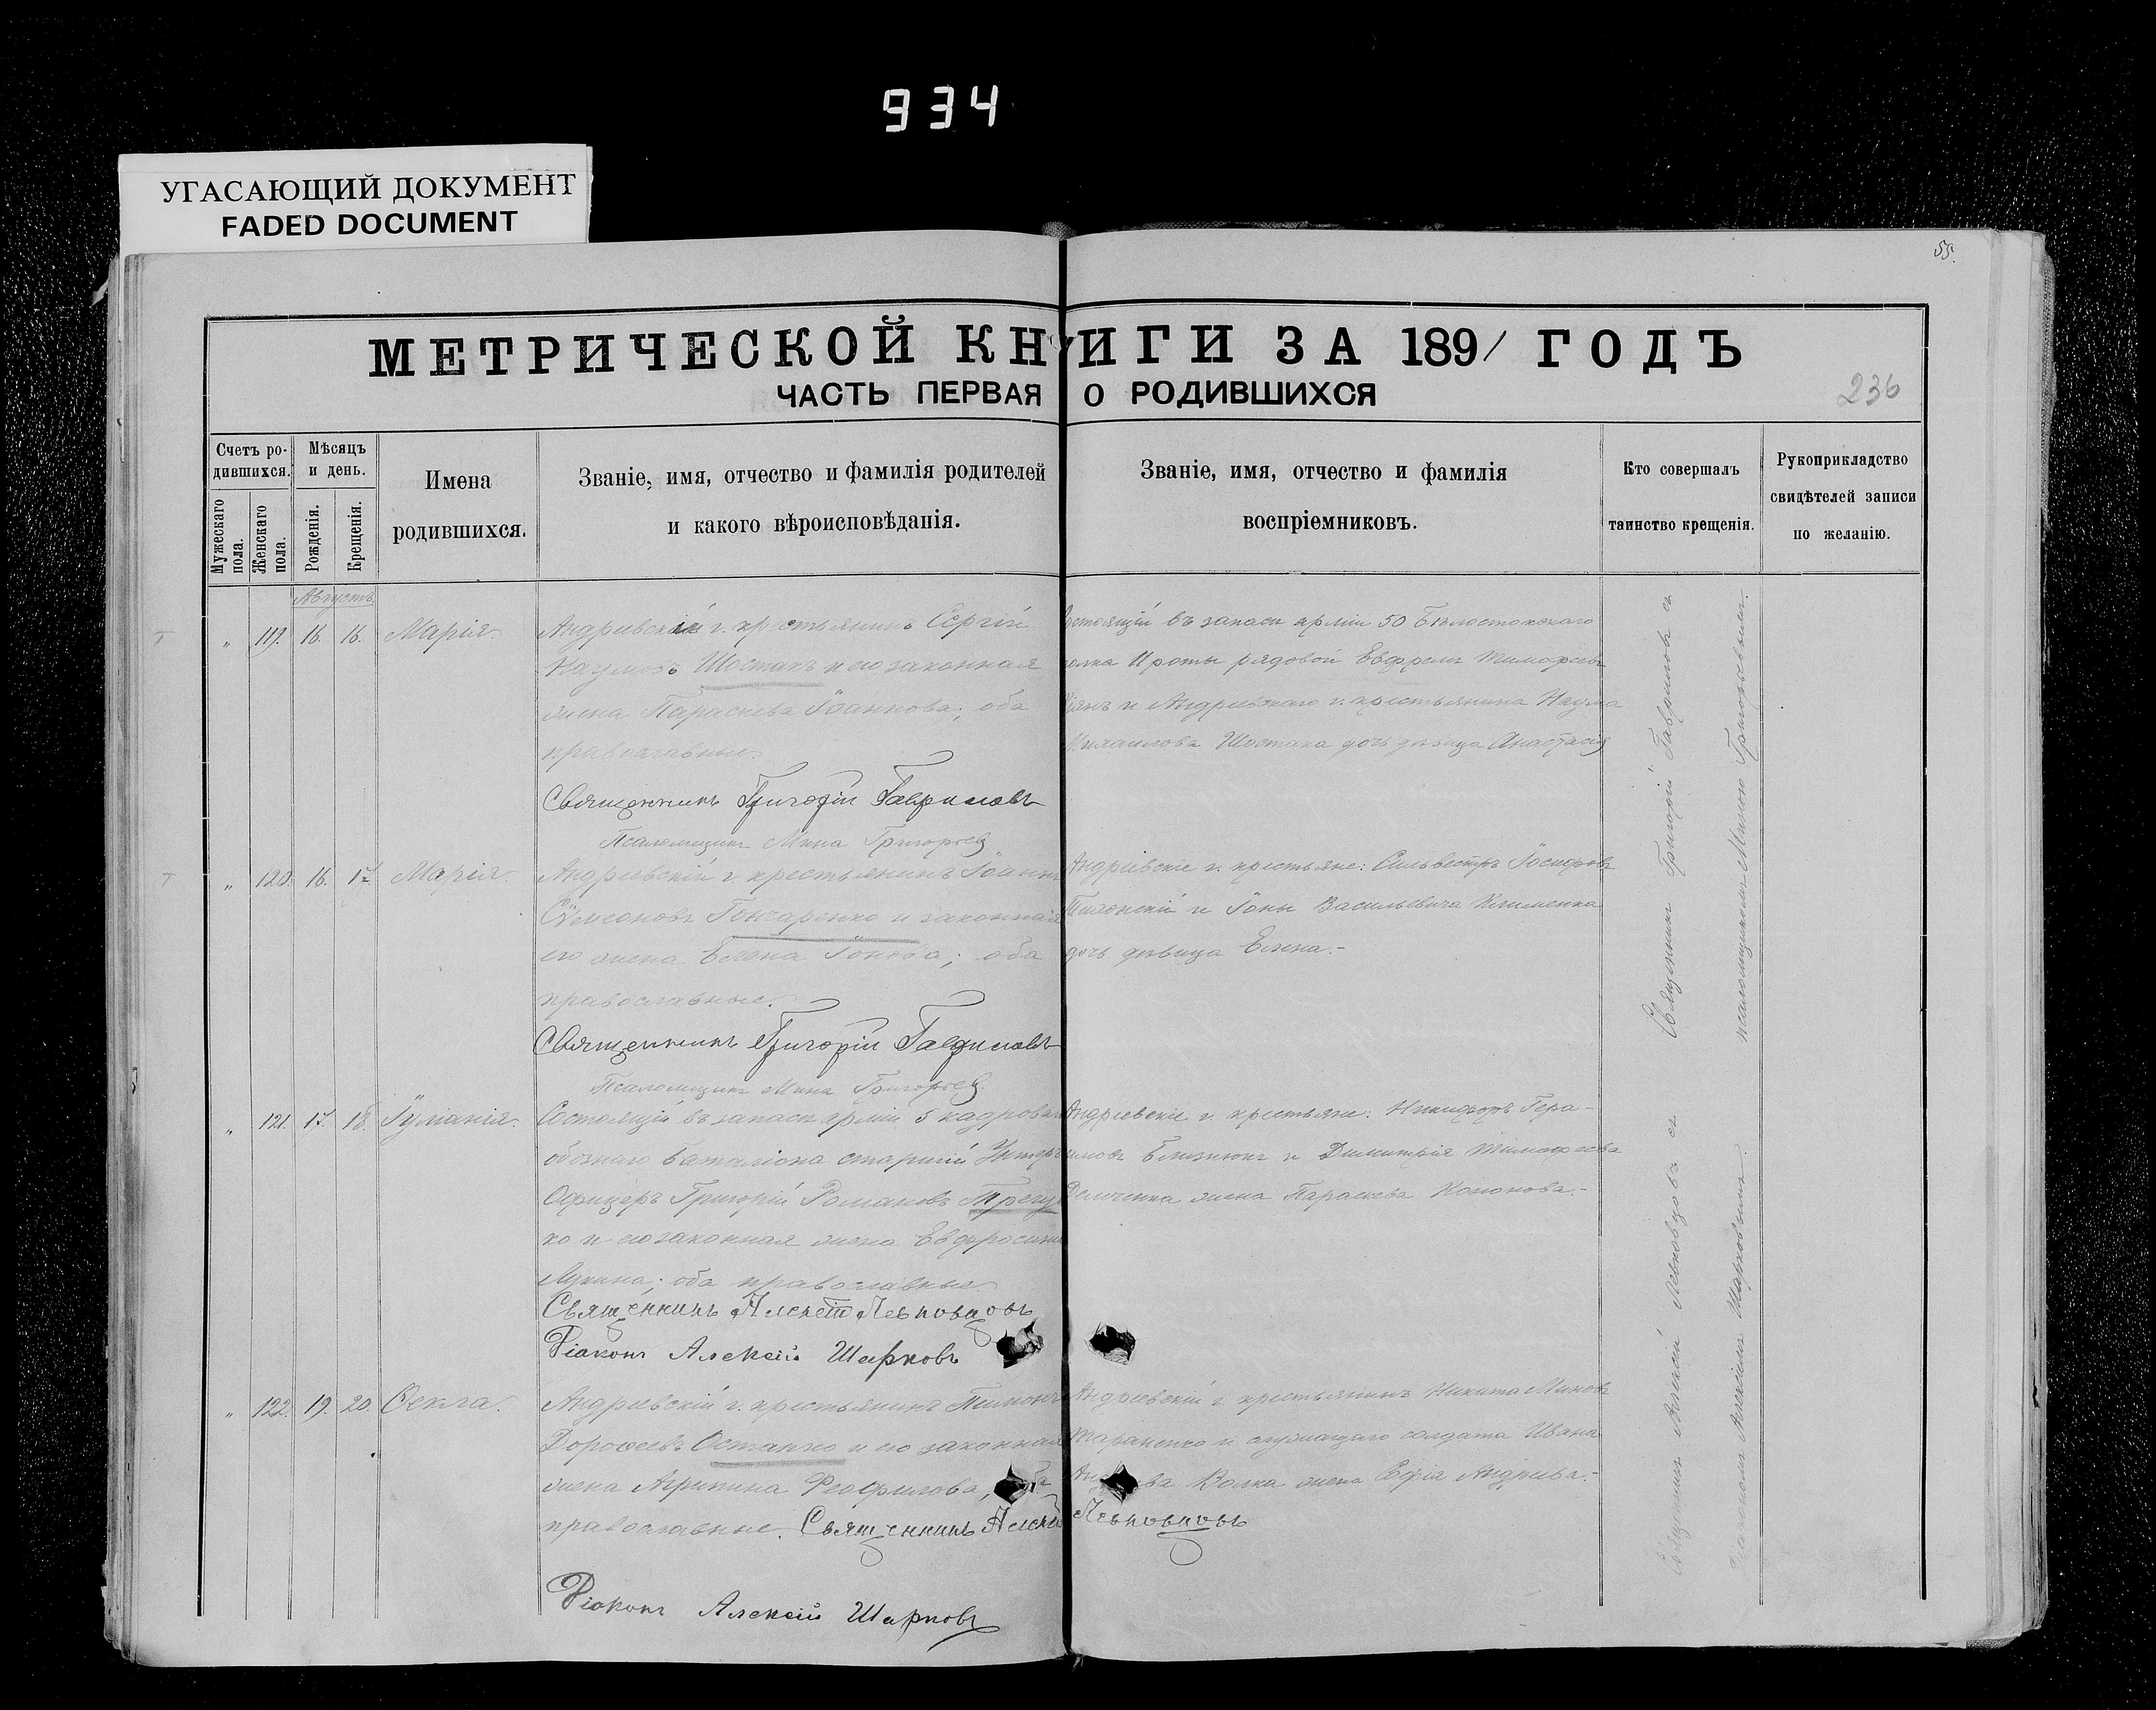 934
УГАСАЮЩИЙ ДОКУМЕНТ
FADED DOCUMENT
55.
МЕТРИЧЕСКОЙ КНИГИ ЗА 1891 ГОДЪ
ЧАСТЬ ПЕРВАЯ О РОДИВШИХСЯ
236
Счетъ ро-
дившихся.
Мужескаго
пола.
Женскаго
пола.
Мѣсяцъ
и день.
Рожденія.
Крещенія.
Имена
родившихся.
Званіе, имя, отчество и фамилія родителей
и какого вѣроисповѣданія.
Званіе, имя, отчество и фамилія
воспріемниковъ.
Кто совершалъ
таинство крещенія.
Рукоприкладство
свидѣтелей записи
по желанію.
Августъ
„ 119. 16. 16. Марія.
Андріевскій г. крестьянинъ Сергій
Наумовъ Шостакъ и его законная
жена Параскева Іоаннова; оба
православные.
Священникъ Григорій Гавриловъ
Псаломщикъ Мина Григорьев
состоящій въ запасѣ арміи 50 Бѣлостокскаго
полка роты рядовой Евфрем Тимофеевъ
и Андріевскаго г. крестьянина Наума
Михаилова Шостака дочь дѣвица Анастасія
„ 120. 16. 17. Марія.
Андріевскій г. крестьянинъ Іоаннъ
Сѵмеоновъ Гончаренко и законная
его жена Елена Іонова; оба
православные.
Священникъ Григорій Гавриловъ
Псаломщикъ Мина Григорьев
Андріевскіе г. крестьяне: Сильвестръ Іосифовъ
и Іоны Васильевича Клименка
дочь дѣвица Елена.-
„ 121. 17. 18. Іуліанія.
Состоящій въ запасѣ арміи 5 кадроваго
обознаго баталіона старшій Унтеръ
Офицеръ Григорій Романовъ Трегуб
ко и его законная жена Евфросинія
Лукина; оба православные.
Священникъ Алексѣй Левковцовъ
Діаконъ Алексѣй Шарковъ
Андріевскіе г. крестьяне: Никифоръ Гера-
симовъ Близнюкъ и Димитрія Тимофеева
Демченка жена Параскева Кононова.-
„ 122. 19. 20. Ѳекла.
Андріевскій г. крестьянинъ Пимонъ
Дорофеевъ Остапко и его законная
жена Агрипина Феофилова, оба
православные. Священникъ Алексѣй Левковцовъ
Діаконъ Алексѣй Шарковъ
Андріевскій г. крестьянинъ Никита Миновъ
Тараненко и служащаго солдата Ивана
Волка жена Софія Андріева.-
Священникъ Григорій Гавриловъ съ
псаломщикомъ Миною Григорьевымъ.
Священникъ Алексій Левковцовъ съ
Діакономъ Алексѣемъ Шарковымъ.